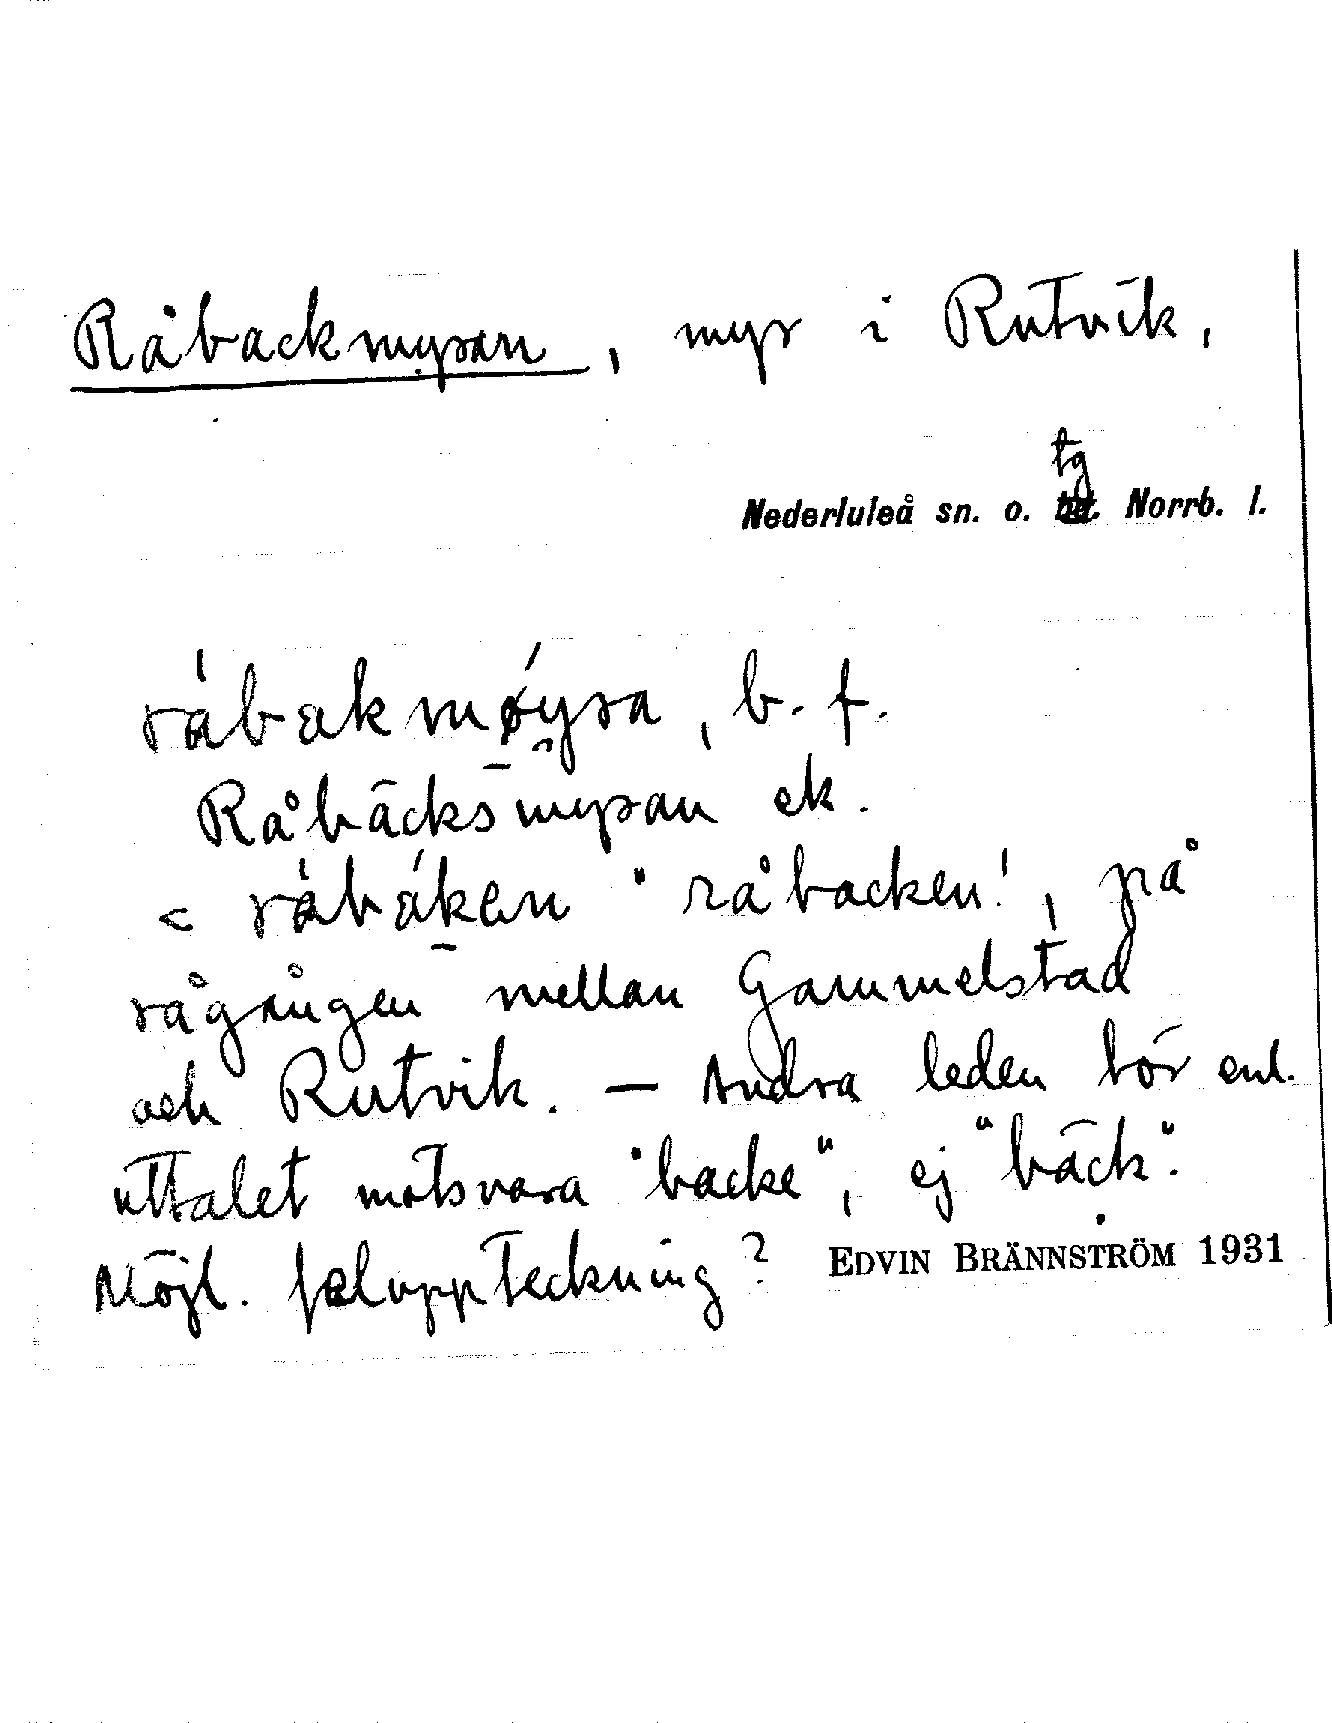 Råbackmyran, myr i Rutvik,
tg
Nederluleå sn. o. Norrb. l.
råbakmøyra, b. f.
Råbäcksmyran ek.
< råbáken "råbacken", på
rågången mellan Gammelstad
och Rutvik. — Andra leden bör enl.
uttalet motsvara "backe", ej "bäck".
Möjl. feluppteckning? EDVIN BRÄNNSTRÖM 1931